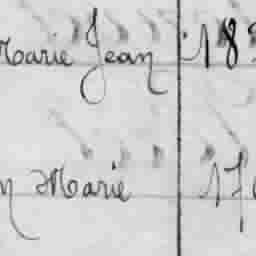 Marie Jean 18
Marie 17